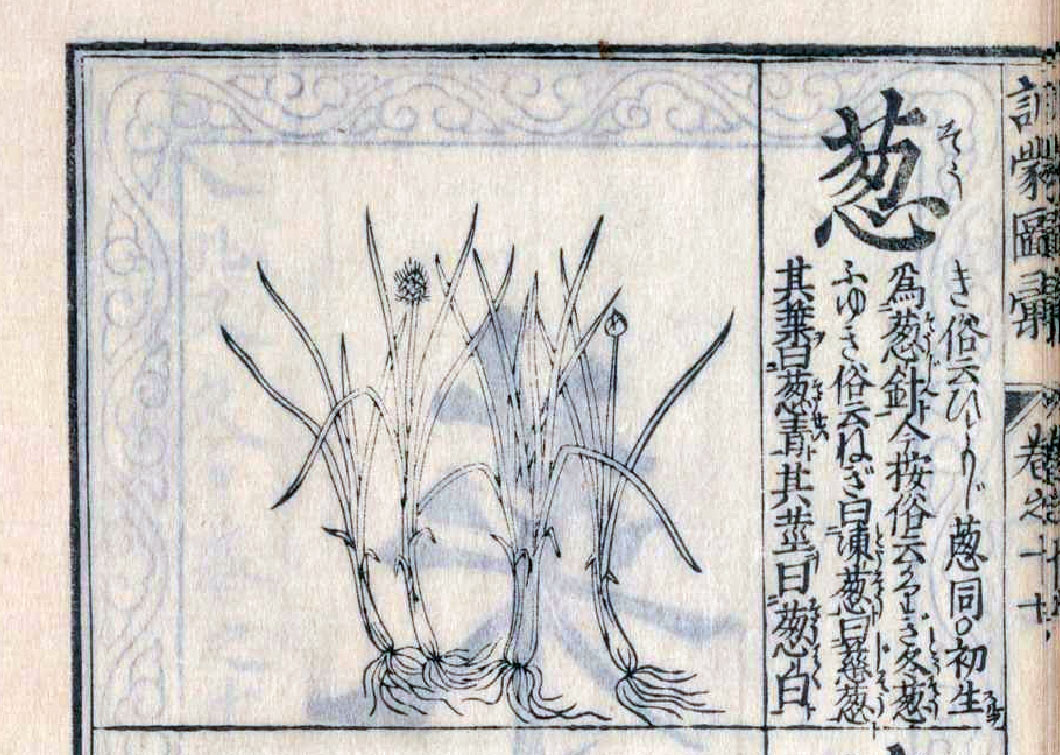 訓蒙圖彙 卷之二十
葱
そう
き俗云ひともじ蔥同○初生
爲葱針今按俗云かりぎ冬葱
ふゆき俗云ねぎ白凍葱曰慈葱
其葉曰葱青其莖曰葱白